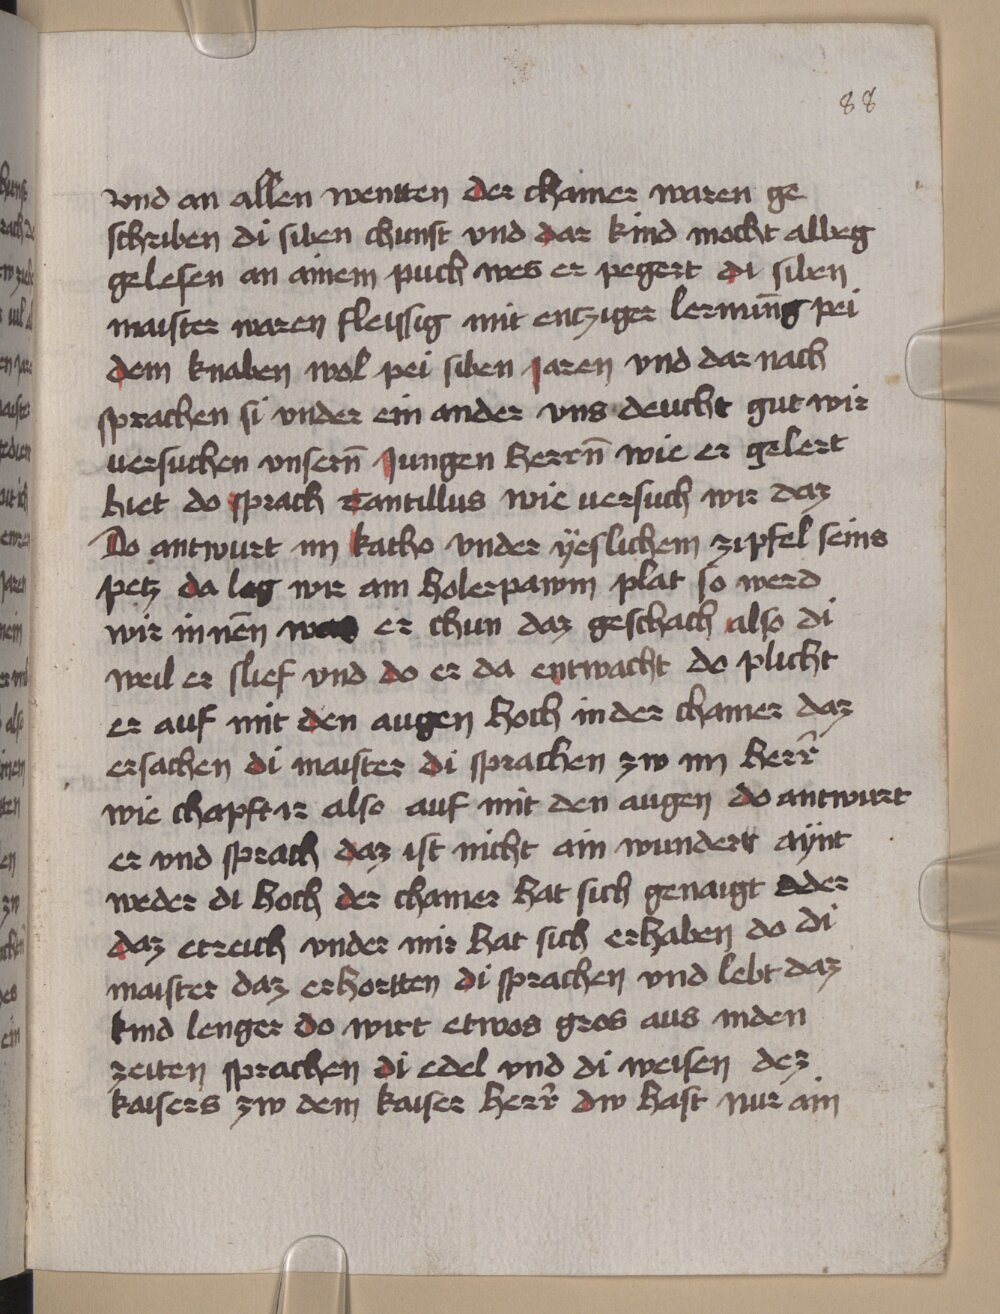 88
vnd an allen wentten der chamer waren ge
schriben di siben chunst vnd dar kind mocht albeg
gelesen an ainem puch wes er pegert di siben
maister waren fleissig mit entziger lernung̅ pei
dem knaben wol pei siben Jaren vnd dar nach
sprachen si vnder ein ander vns deucht gut wir
uersuchen vnsern̅ Jungen herrn̅ wie er gelert
hiet do sprach Tantillus wie uersuch wir daz
Do antwurt im katho vnder yeslichem zipfel seins
petz da leg wir am holerpawm plat so werd
wir innen̅ was er chun daz geschach also di
weil er slief vnd do er da entwacht do plicht
er auf mit den augen hoch in der chamer daz
ersachen di maister di sprachen zw im herr̅
wie chapft ir also auf mit den augen do antwurt
er vnd sprach daz ist nicht ain wundert aynt
weder di hoch der chamer hat sich genaigt oder
daz etreich vnder mir hat sich erhaben do di
maister daz erhortten di sprachen vnd lebt daz
kind lenger do wirt etwos gros aus in den
zeiten sprachen di edel vnd di weisen dez
kaisers zw dem kaiser herr̅ dw hast nur ain